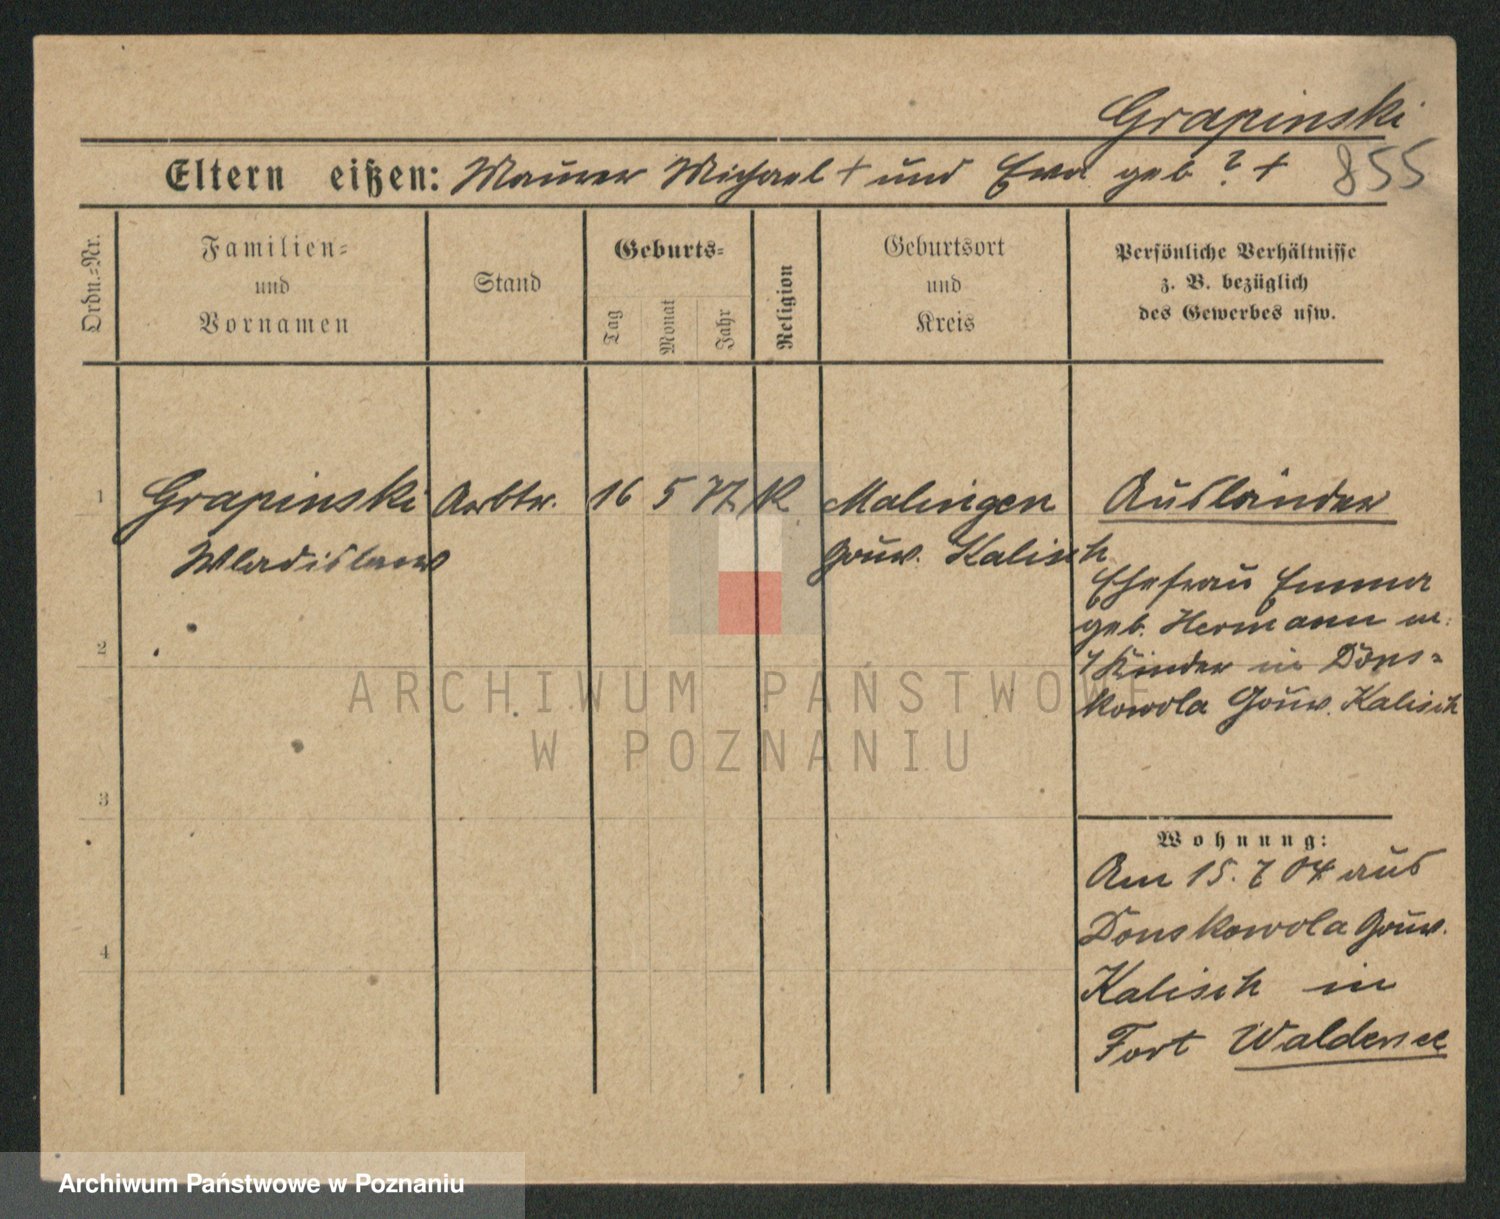 Grapinski
855
Eltern eißen: Maurer Michael + und Ewa geb ? +
Ordn.=Nr.
Familien=
und
Vornamen
Stand
Geburts=
Tag
Monat
Jahr
Religion
Geburtsort
und
Kreis
Persönliche Verhältnisse
z. B. bezüglich
des Gewerbes usw.
1
Grapinski Arbtr. 16 5 K Malingen Ausländer
Wladislaw
Gouv. Kalisch
Ehefrau Emma
geb. Hermann m.
4 Kinder in Dons=
kowola Gouv. Kalisch
2
3
4
Wohnung:
Am 15. 7 04 aus
Donskowola Gouv.
Kalisch in
Fort Waldersee
ARCHIWUM PAŃSTWOWE
W POZNANIU
Archiwum Państwowe w Poznaniu